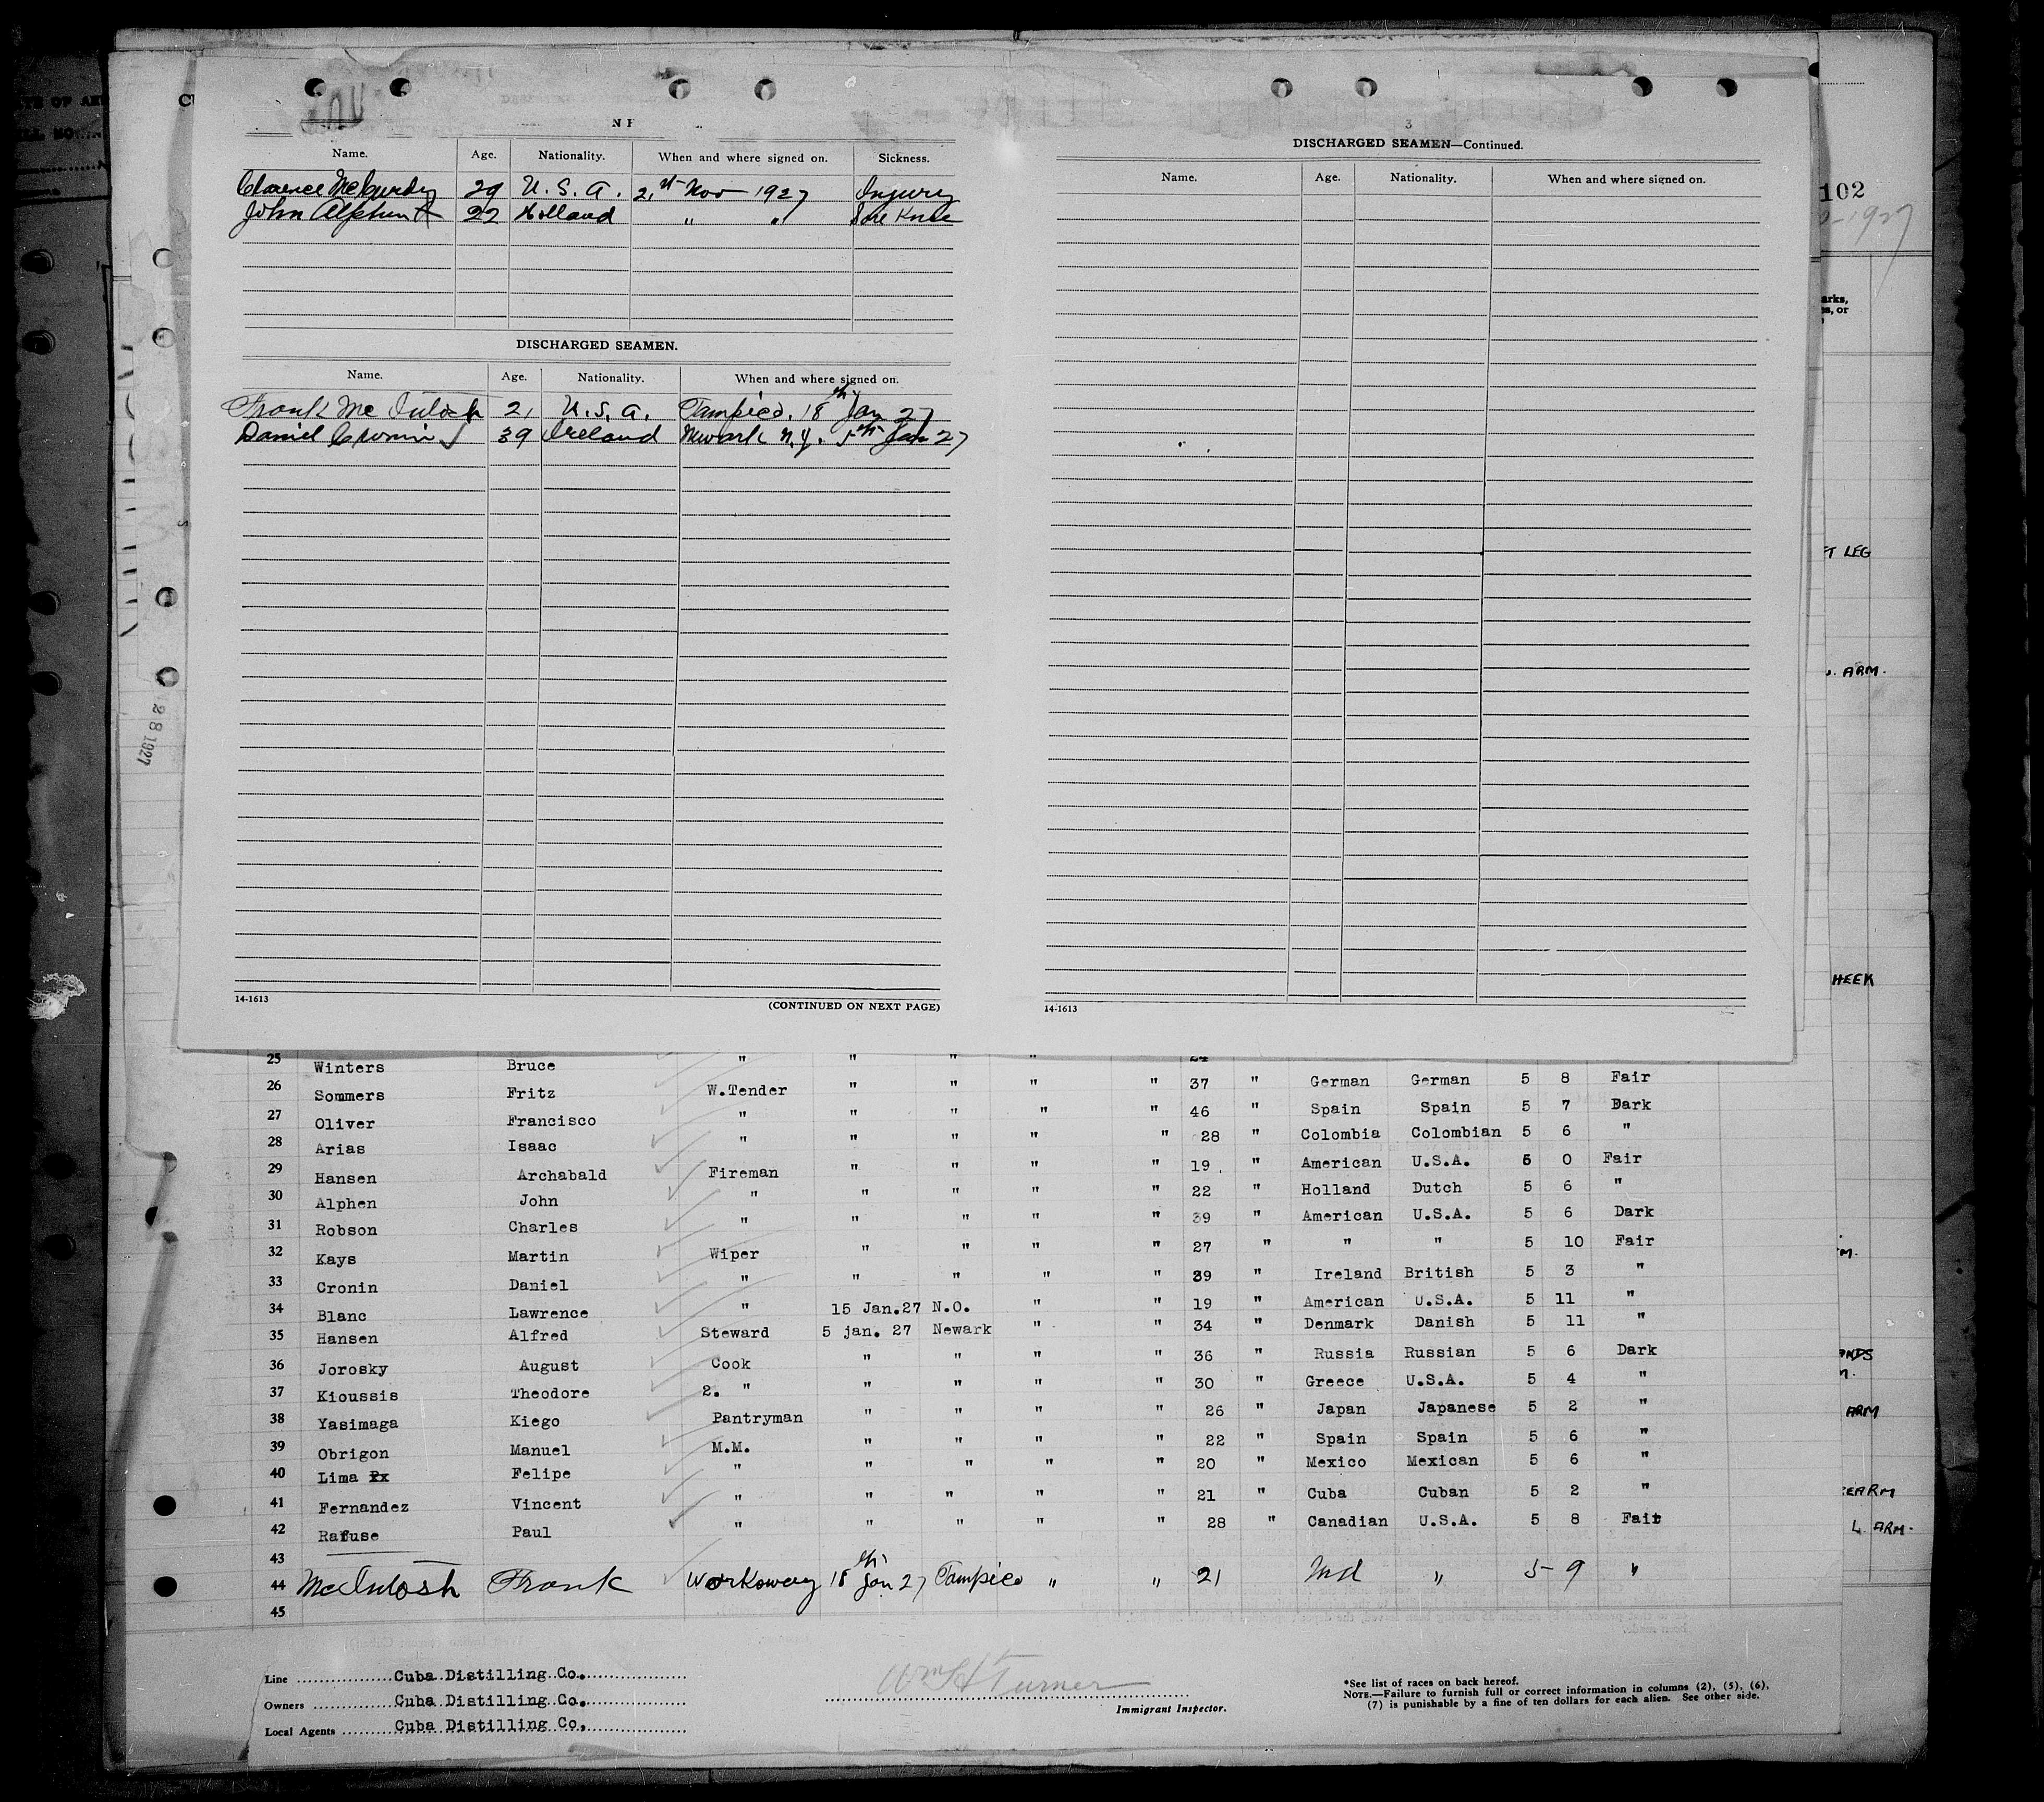 Name. Age. Nationality. When and where signed on. Sickness.
Clarence McCurdy 29 U. S. A. 2, st Nov 1927 Injury
John Alphen 22 Holland " " Sore Knee
DISCHARGED SEAMEN.
Name. Age. Nationality. When and where signed on.
Frank Mc Intosh 21 U.S.A. Tampico. 18th Jan 27
Daniel Cronin 39 Ireland Newark N.J. 5th Jan 27
14-1613 (CONTINUED ON NEXT PAGE)
3
DISCHARGED SEAMEN—Continued.
Name. Age. Nationality. When and where signed on.
14-1613
102
1927
arks,
es, or
FT LEG
ARM.
HEEK
28 1927
25 Winters Bruce " " " "
26 Sommers Fritz W.Tender " " " " 37 " German German 5 8 Fair
27 Oliver Francisco " " " " " 46 " Spain Spain 5 7 Dark
28 Arias Isaac " " " " " 28 " Colombia Colombian 5 6 "
29 Hansen Archabald Fireman " " " " 19 " American U.S.A. 6 0 Fair
30 Alphen John " " " " " 22 " Holland Dutch 5 6 "
31 Robson Charles " " " " " 39 " American U.S.A. 5 6 Dark
32 Kays Martin Wiper " " " " 27 " " " 5 10 Fair
33 Cronin Daniel " " " " " 39 " Ireland British 5 3 "
34 Blanc Lawrence " 15 Jan.27 N.O. " " 19 " American U.S.A. 5 11 "
35 Hansen Alfred Steward 5 jan. 27 Newark " " 34 " Denmark Danish 5 11 "
36 Jorosky August Cook " " " " 36 " Russia Russian 5 6 Dark
37 Kioussis Theodore 2. " " " " " 30 " Greece U.S.A. 5 4 "
38 Yasimaga Kiego Pantryman " " " " 26 " Japan Japanese 5 2 " ARM
39 Obrigon Manuel M.M. " " " " 22 " Spain Spain 5 6 "
40 Lima Felipe " " " " " 20 " Mexico Mexican 5 6 "
41 Fernandez Vincent " " " " " 21 " Cuba Cuban 5 2 " EARM
42 Rafuse Paul " " " " " 28 " Canadian U.S.A. 5 8 Fair L ARM.
43
44 McIntosh Frank Workaway 18th Jan 27 Tampico " " 21 Ind " 5 9 "
45
Line Cuba Distilling Co.
Owners Cuba Distilling Co.
Local Agents Cuba Distilling Co.
Wm H Turner
Immigrant Inspector.
*See list of races on back hereof.
NOTE.—Failure to furnish full or correct information in columns (2), (5), (6),
(7) is punishable by a fine of ten dollars for each alien. See other side.